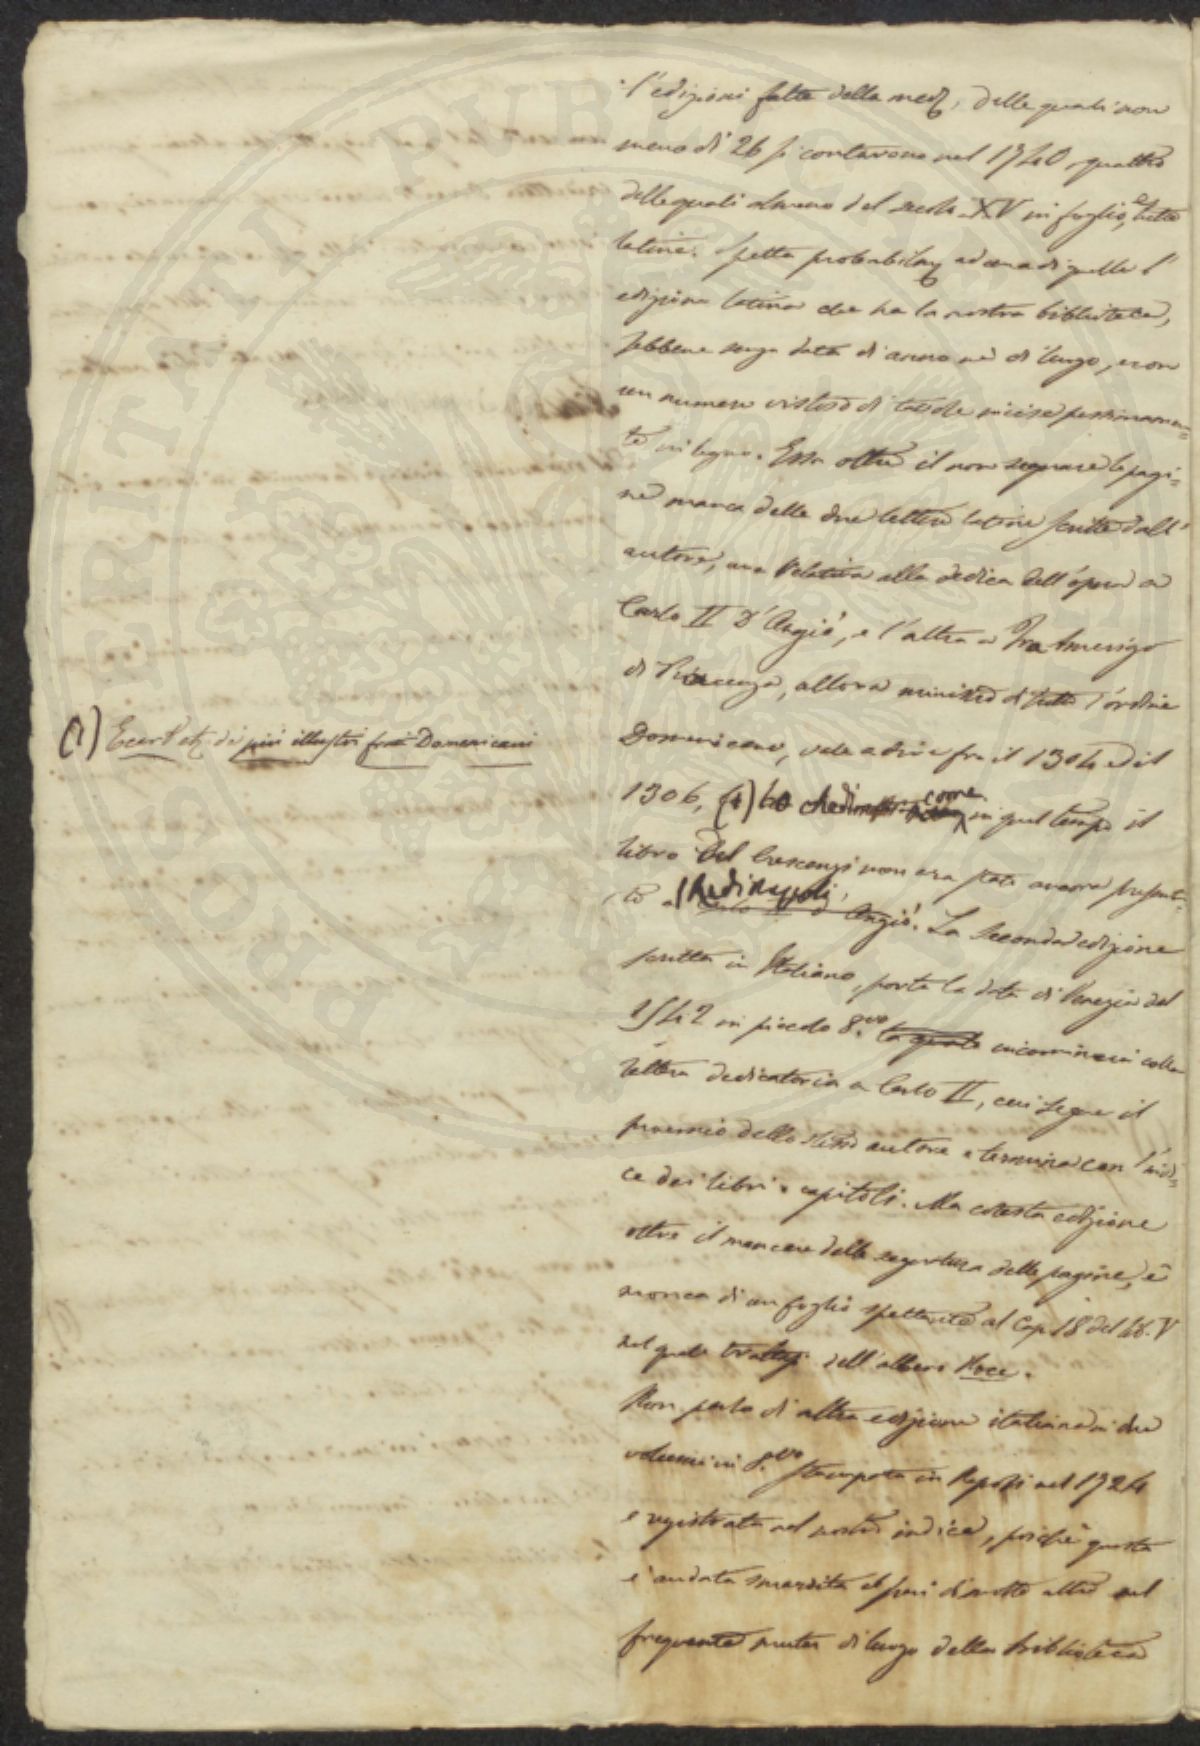 l'edizioni fatte della med.ª, delle quali non
meno di 26 si contavano nel 1740, quattro
delle quali almeno del secolo XV in foglio, e tutte
latine. Spetta probabilm.e ad una di quelle l'
edizione latina che ha la nostra biblioteca,
sebbene senza data di anno nè di luogo, e con
un numero vistoso di tavole incise pessimamen=
te in legno. Essa oltre il non segnare le pagi=
ne manca delle due lettere latine scritte dall'
autore, una relativa alla dedica dell'opera a
Carlo II D'Angiò, e l'altra a Fra Amerigo
di Piacenza, allora ministro di tutto l'ordine
Domenicano, vale a dire fra il 1304 ed il
1306, (1) come in quel tempo il
libro del Crescenzi non era stato ancora presenta=
to al Re di Napoli, Carlo II d'Angiò. La seconda edizione
scritta in Italiano, porta la data di Venezia del
1542 in piccolo 8.vo la quale incomincia colla
lettera dedicatoria a Carlo II, cui segue il
proemio dello stesso autore e termina con l'indi=
ce dei libri e capitoli. Ma cotesta edizione
oltre il mancare della segnatura delle pagine, è
monca di un foglio spettante al Cap. 18 del Lib. V
nel quale trattasi dell'albero Noce.
Non parlo di altra edizione italiana in due
volumi in 8.vo stampata in Napoli nel 1724
e registrata nel nostro indice, poichè questa
è andata smarrita al pari di molte altre nel
frequente mutar di luogo della Biblioteca
(1) Ecart etc. dei più illustri frati Domenicani
POSTERITATI PUBLICAE